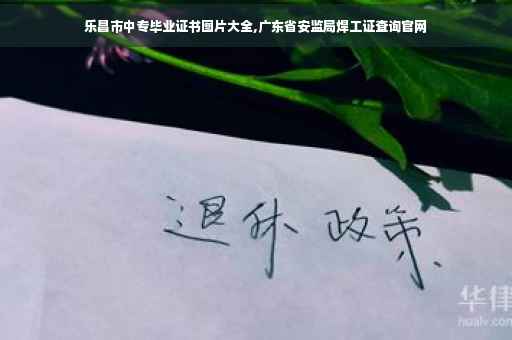 乐昌市中专毕业证书图片大全,广东省安监局焊工证查询官网
退休 政策
华律
hualv.com